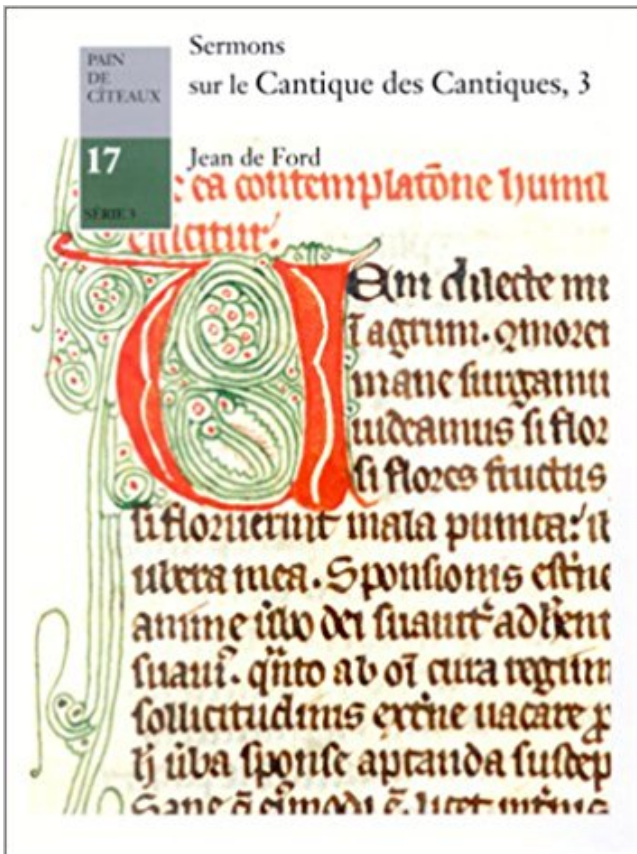 PAIN
DE
CÎTEAUX
17
SÉRIE 3
Sermons
sur le Cantique des Cantiques, 3
Jean de Ford
ea contemplatōne humil
Veni dilecte mi
ī agrum. ꝯmorem
mane surgamu
uideamus si flor
si flores fructus
si floruerint mala punica: ib
ubera mea. Sponsionis
amine dei adh
suaui. ab oī cura regim
sollicitudinis uacare
sponse aptanda suscep
Sane